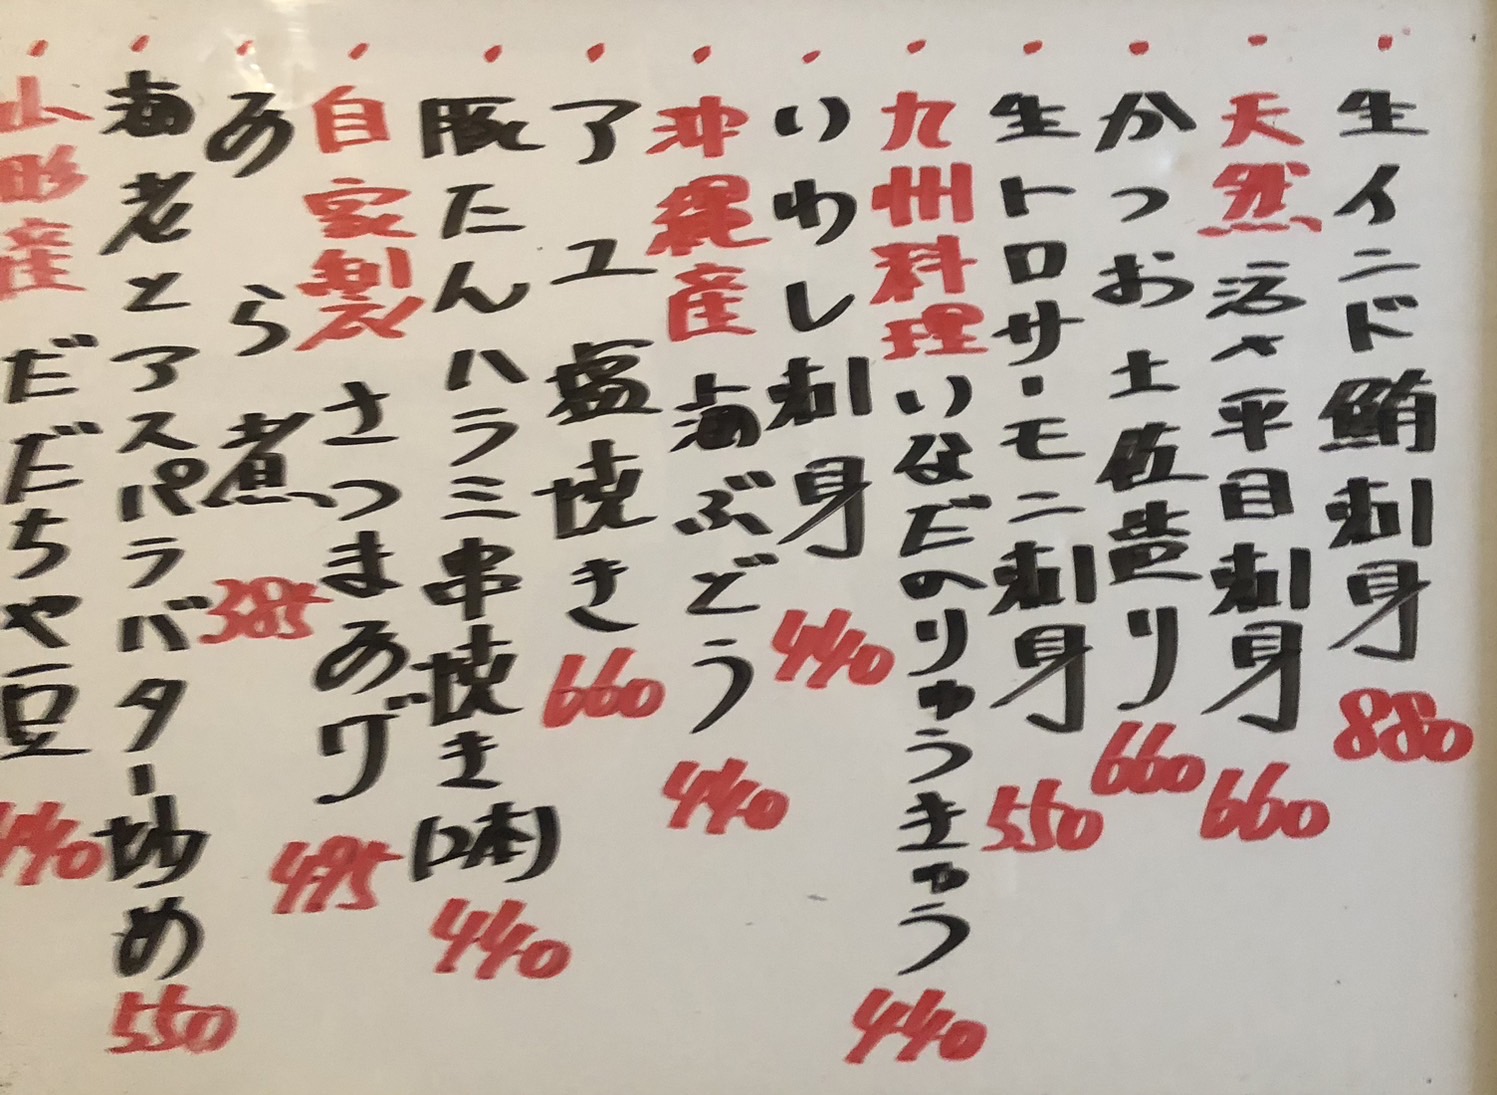 ・生インド鮪刺身 880
・天然活〆平目刺身 660
・かつお土佐造り 660
・生トロサーモン刺身 550
・九州料理いなだのりゅうきゅう 440
・いわし刺身 440
・沖縄産海ぶどう 440
・アユ塩焼き 660
・豚たんハラミ串焼き(2本) 440
・自家製さつまあげ 495
・あら煮 385
・海老とアスパラバター炒め 550
・山形産だだちゃ豆 440